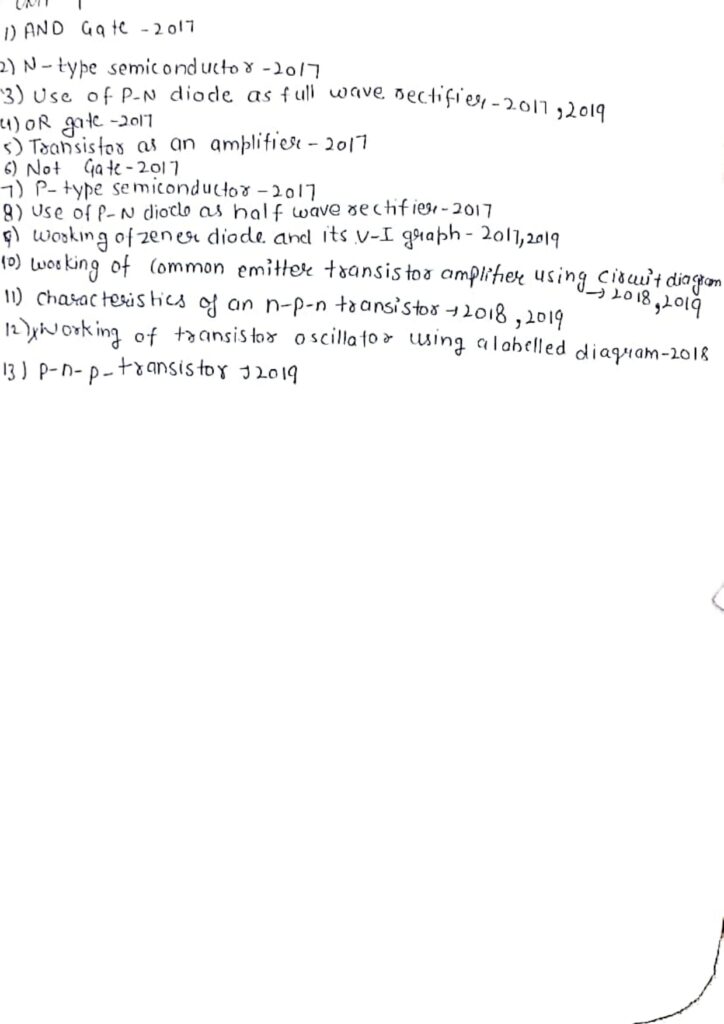 UNIT 1
1) AND Gate - 2017
2) N-type semiconductor - 2017
3) Use of P-N diode as full wave rectifier - 2017, 2019
4) OR gate - 2017
5) Transistor as an amplifier - 2017
6) Not Gate - 2017
7) P-type semiconductor - 2017
8) Use of P-N diode as half wave rectifier - 2017
9) Working of zener diode and its V-I graph - 2017, 2019
10) Working of Common emitter transistor amplifier using circuit diagram
→ 2018, 2019
11) Characteristics of an n-p-n transistor → 2018, 2019
12) Working of transistor oscillator using a labelled diagram - 2018
13) p-n-p-transistor → 2019